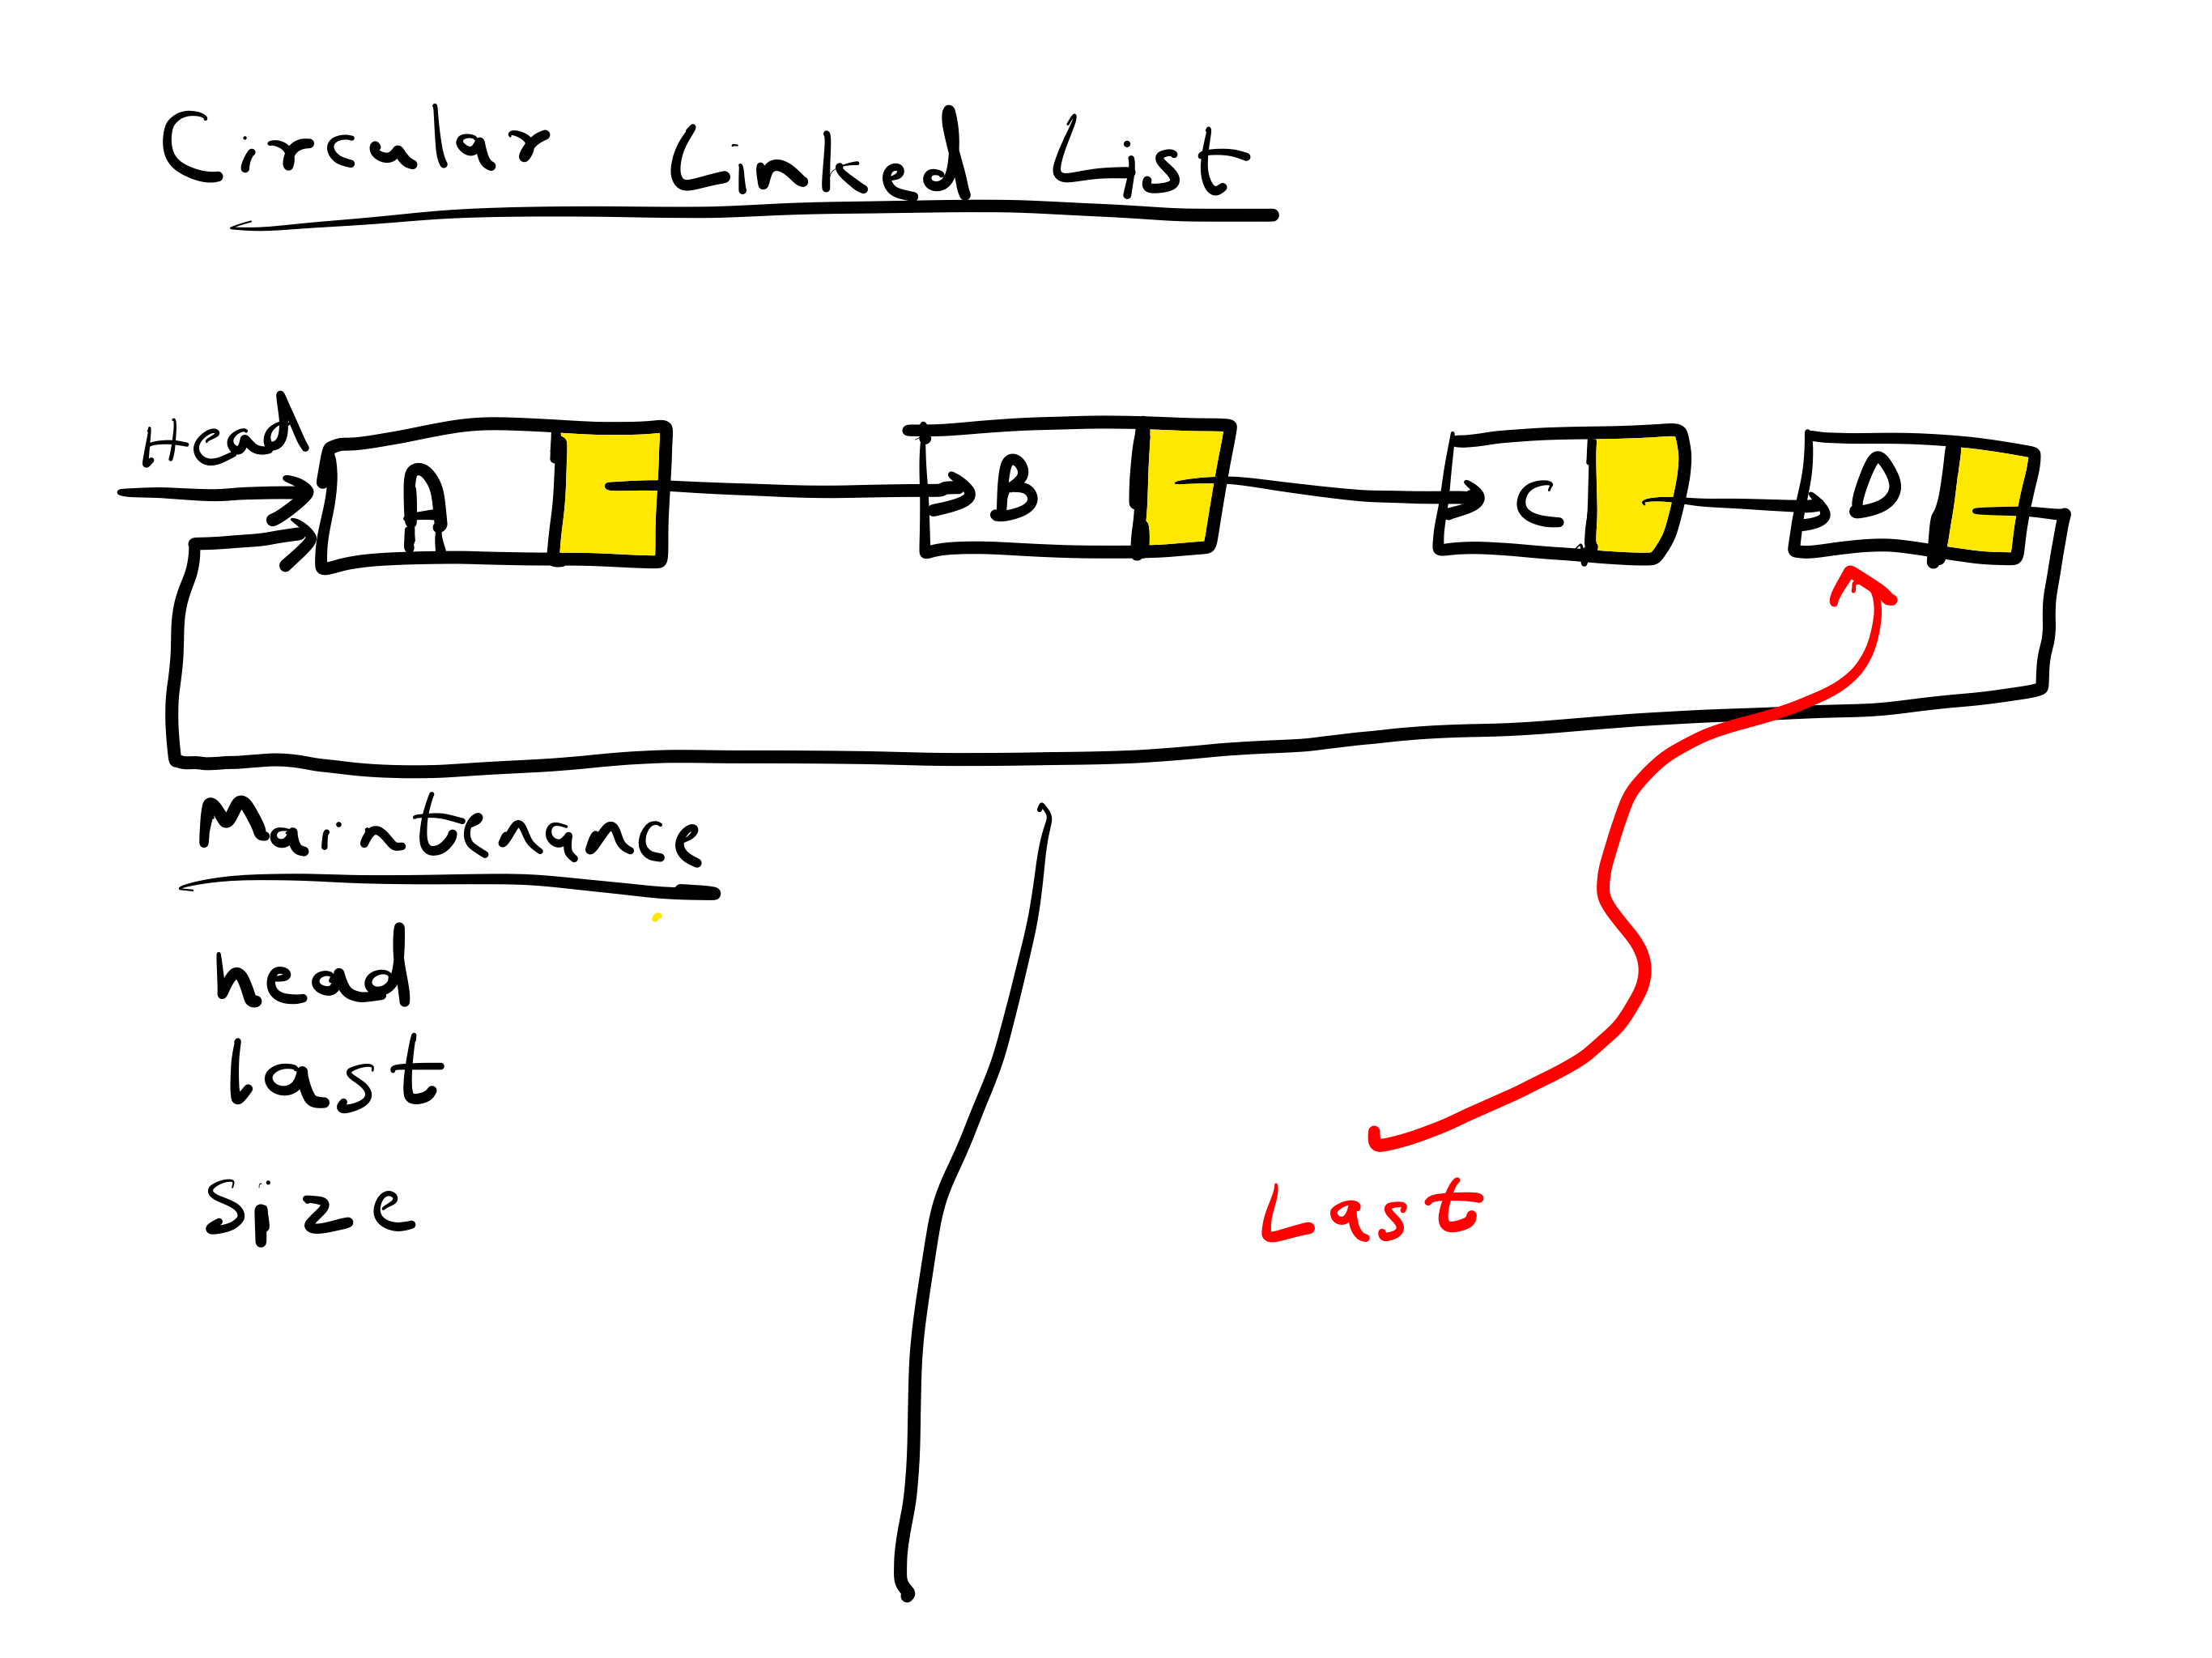 Circular Linked List
Head
A B C D
Maintenance
head
last
size
Last